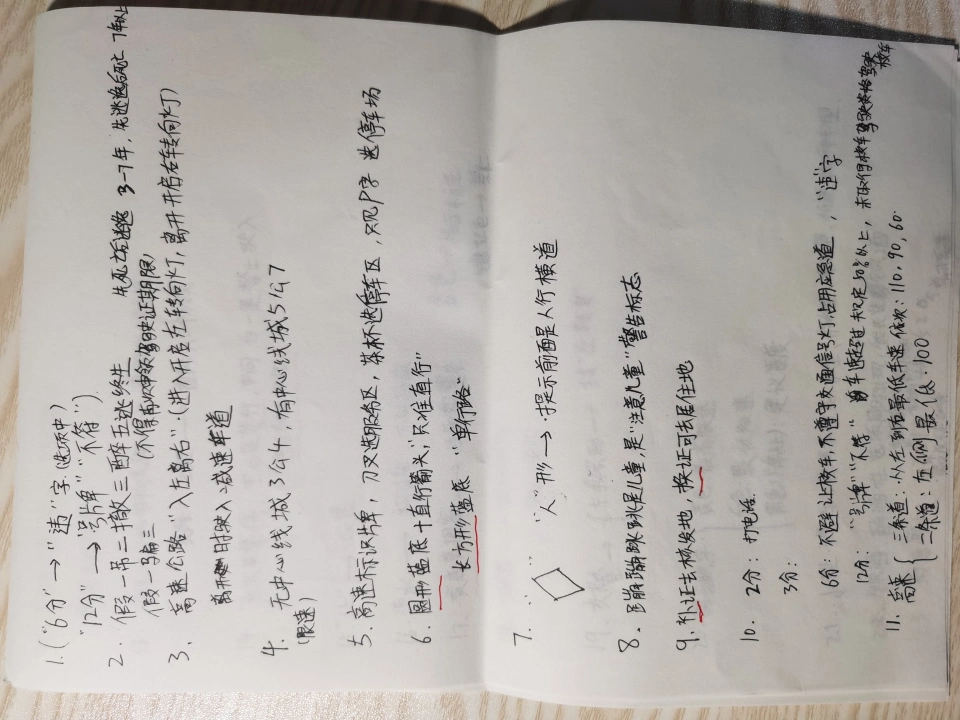 1. ("6分" → "违"字 (选项中)
"12分" → "号牌" "不符")
2. 假一吊二撤三醉五逃终生
(不得再次申领驾驶证期限)
假一骗三
先死后逃 3-7年, 先逃后死 7年以上
3. 高速公路 "入左离右" (进入开启左转向灯, 离开开启右转向灯)
离开时驶入减速车道
4. 无中心线城3公4, 有中心线城5公7
(限速)
5. 高速标识牌, 刀叉选服务区, 茶杯选停车区, 只见P字选停车场
6. 圆形蓝底+直行箭头, "只准直行"
长方形蓝底 "单行路"
7. "◇" "人"形 → 提示前面是人行横道
8. 蹦蹦跳跳是儿童, 是"注意儿童"警告标志
9. 补证去核发地, 换证可去居住地
10. 2分: 打电话.
3分:
6分: 不避让校车, 不遵守交通信号灯, 占用应急道, "违"字
12分: "号牌" "不符" 车速超过规定50%以上, 未取得校车驾驶资格驾驶校车
11. 高速 { 三条道: 从左到右最低车速依次: 110, 90, 60.
二条道: 左侧最低: 100